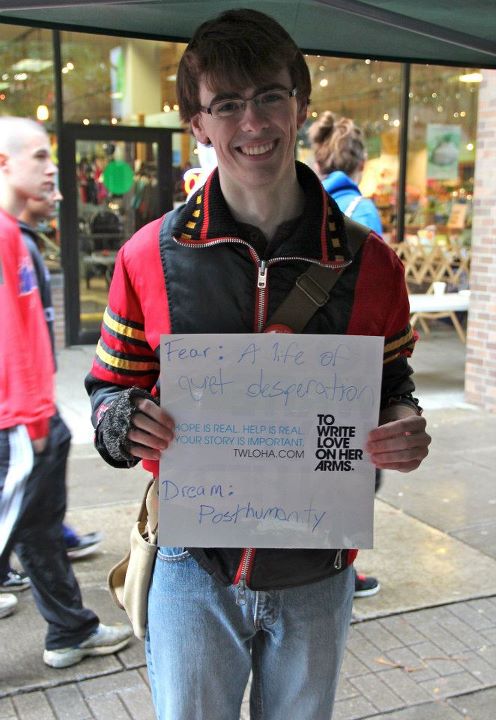 Fear: A life of
quiet desperation
HOPE IS REAL. HELP IS REAL.
YOUR STORY IS IMPORTANT.
TWLOHA.COM
TO
WRITE
LOVE
ON HER
ARMS.
Dream:
Posthumanity